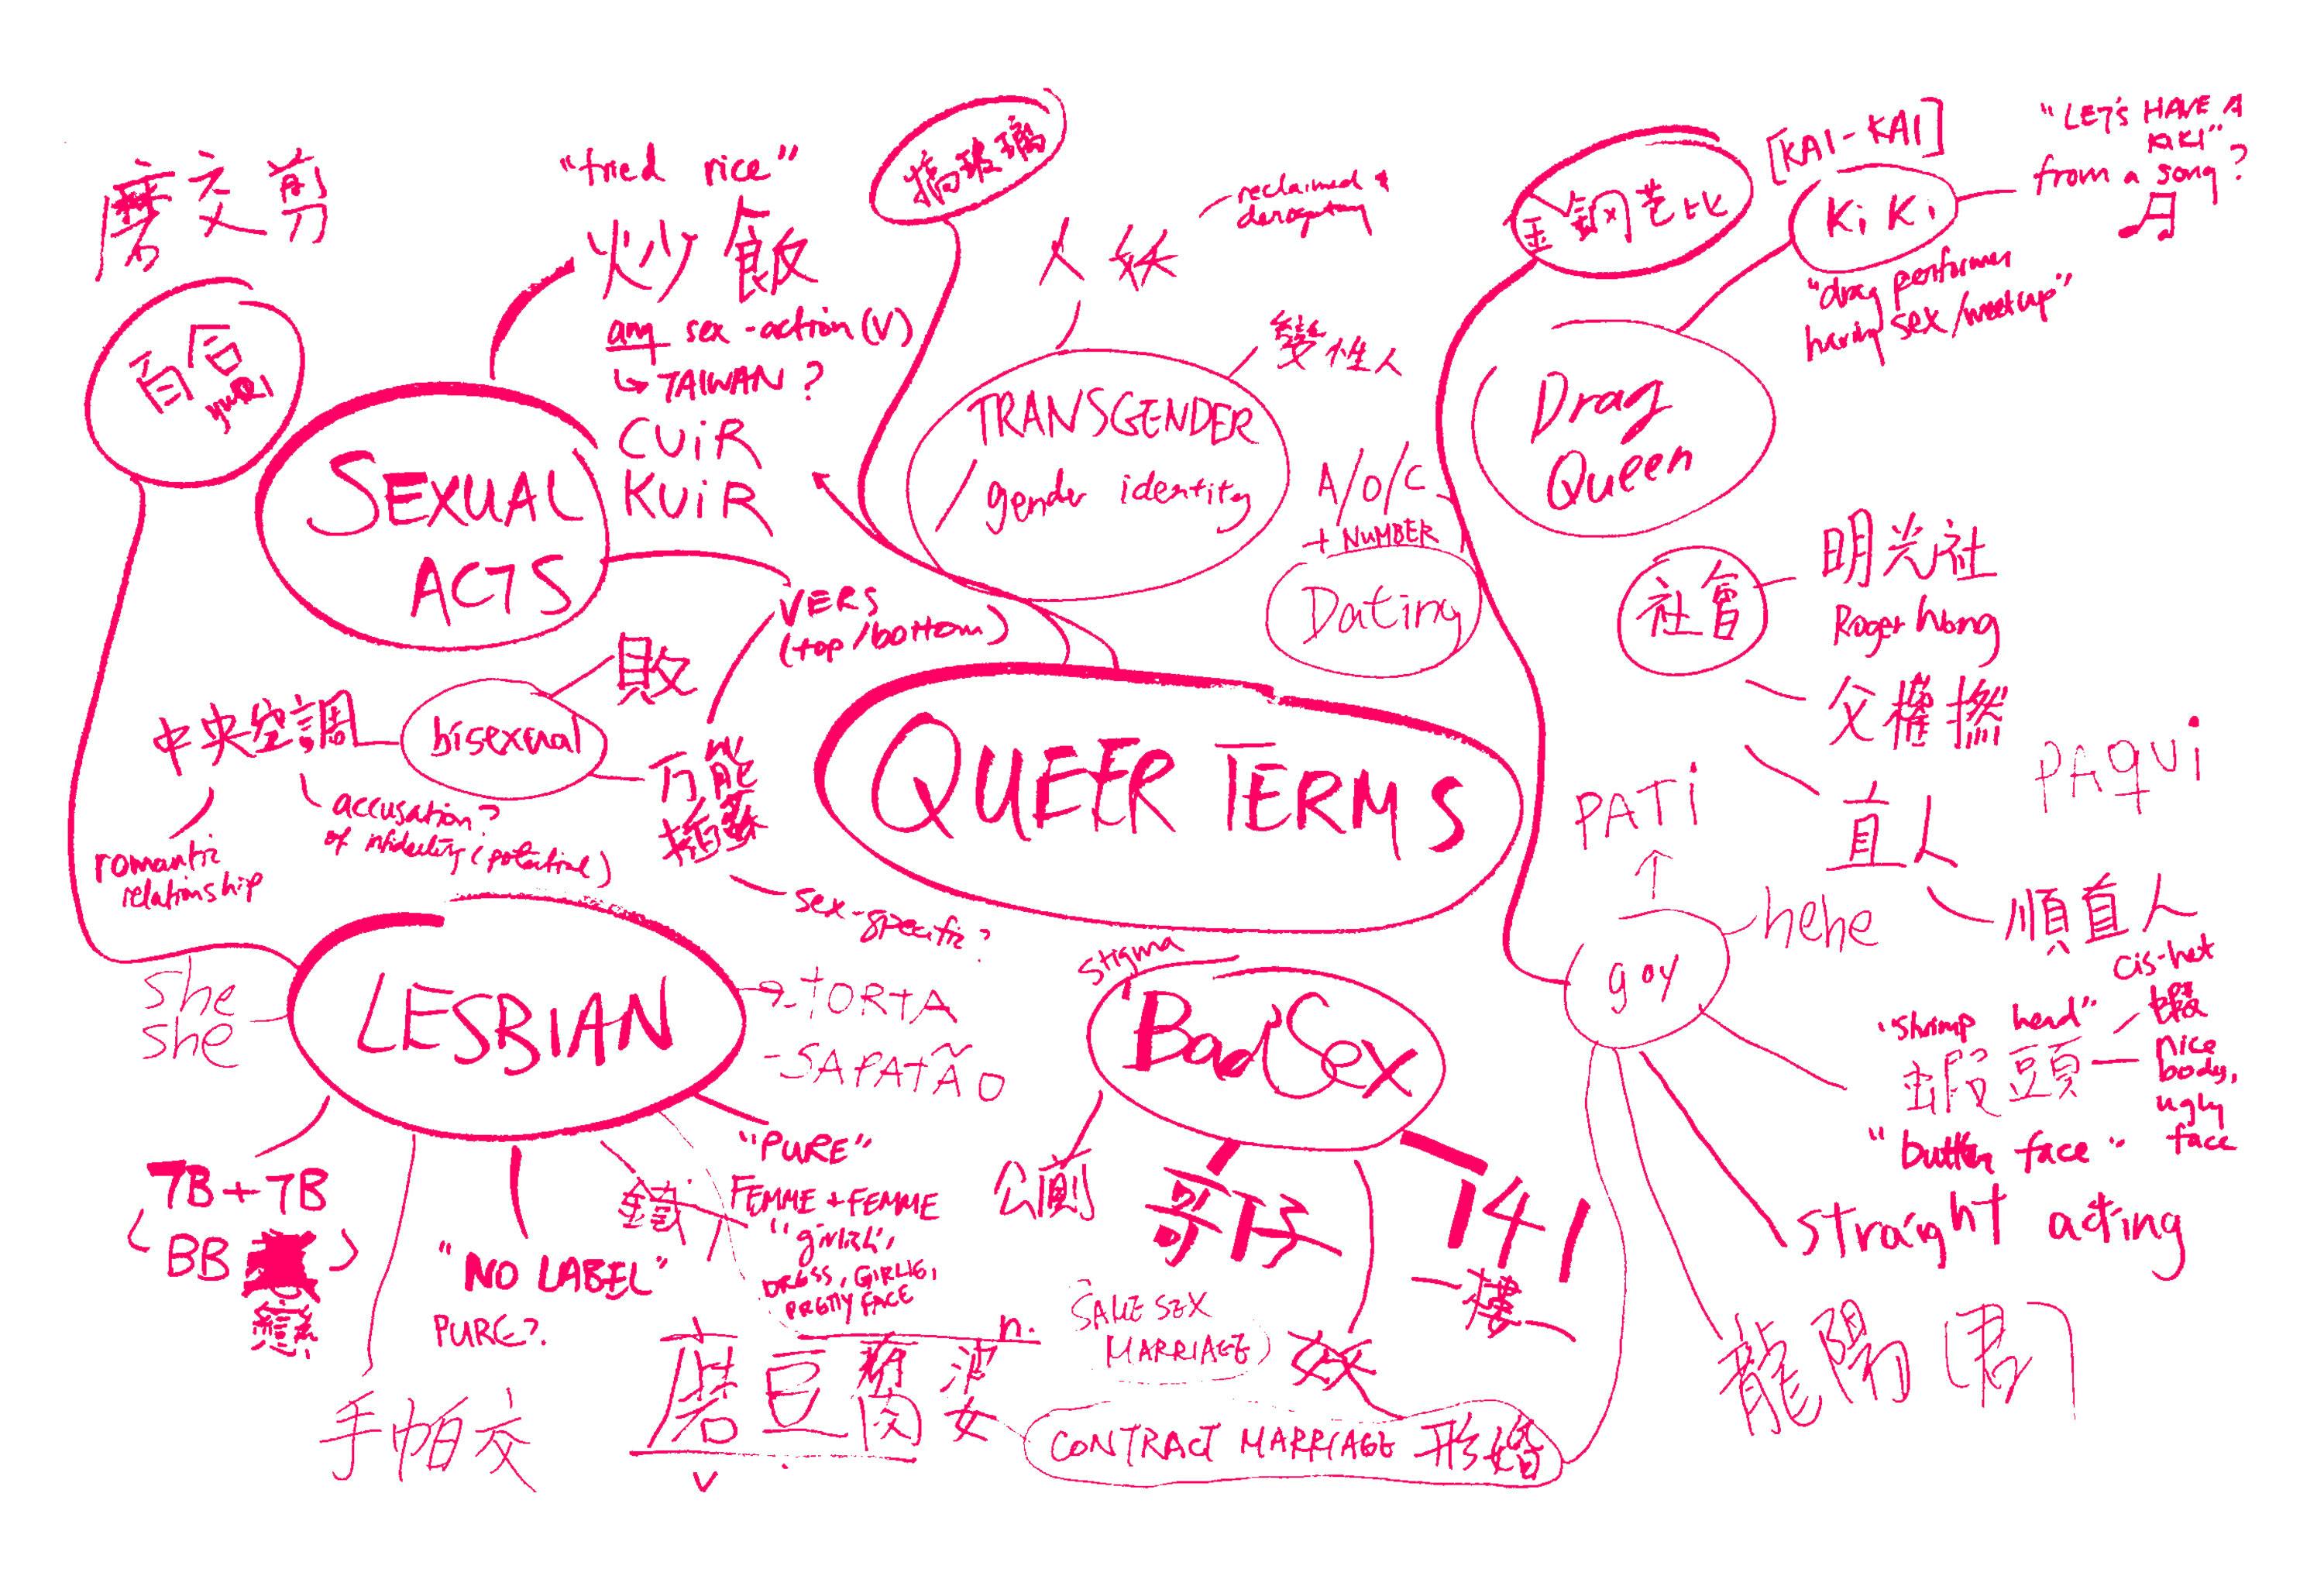 磨交剪
百合
YURI
SEXUAL
ACTS
"fried rice"
炒飯
any sex-action (V)
↳ TAIWAN?
CUiR
KUiR
VERS
(top/bottom)
搞玻璃
人妖
reclaimed &
derogatory
TRANSGENDER
/ gender identity
變性人
A/O/C
+ NUMBER
Dating
金鋼芭比
[KAI-KAI]
KiKi
"LET'S HAVE A
KIKI"
from a song?
"drag performer
having sex/meetup"
Drag
Queen
社會
明光社
Roger Wong
父權撚
直人
順直人
cis-het
PAQUi
PATi
↑
hehe
goy
"shrimp head"
蝦頭
nice
body,
ugly
face
"butter face"
straight acting
龍陽(君)
QUEER TERMS
bisexual
敗
中央空調
accusation?
of infidelity (potential)
romantic
relationship
万能
sex-specific?
LESBIAN
she
she
TORTA
- SAPATÃO
TB+TB
(BB
戀)
手帕交
"NO LABEL"
PURE?
"PURE"
FEMME + FEMME
"girlish",
DRESS, GIRLIGI,
PRETTY FACE
鐵
磨豆腐婆
n.
v
stigma
Bad Sex
公廁
哥仔
141
一樓一
SAME SEX
MARRIAGE)
CONTRACT MARRIAGE 形婚